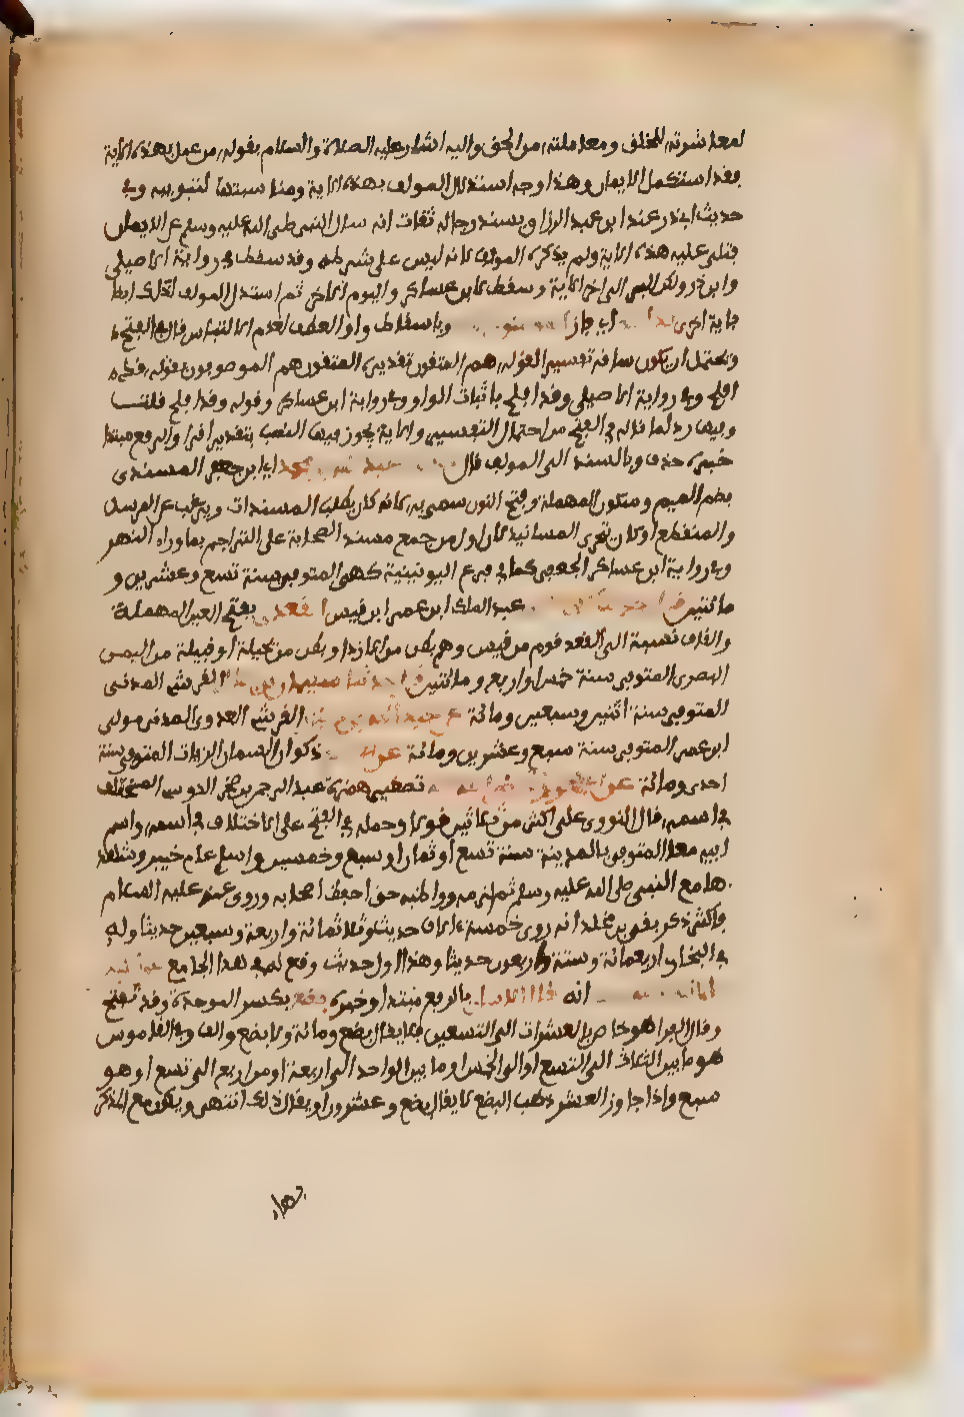 لمعاشرته للخلق ومعاملته من الحق واليه اشار عليه الصلاة والسلام بقوله من عمل بهذه الاية
فقد استكمل الايمان وهذا وجه استدلال المولف بهذه الاية ومناسبتها لتبويبه وفي
حديث ابي ذر عند ابن عبد الرزاق بسند رجاله ثقات انه سال النبي صلى الله عليه وسلم عن الايمان
فتلى عليه هذه الاية ولم يذكره المولف لانه ليس على شرطه وقد سقط في رواية الاصيلي
وابي ذر ولكن البر الى اخر الاية وسقط لابن عساكر واليوم الاخر ثم استدل المولف لذلك ايضا
باية اخرى وباسقاط واو العطف لعدم الالتباس قال في الفتح
ويحتمل ان يكون ساقه تفسيرا لقوله هم المتقون تقديره المتقون هم الموصوفون بقوله قد
افلح وفي رواية الاصيلي وقد افلح باثبات الواو وفي رواية ابن عساكر وقوله وقد افلح قلت
وفيهما رد لما قاله في الفتح من احتمال التفسير والاية يجوز فيها النصب بتقدير اقرا والرفع مبتدا
خبره حذف وبالسند الى المولف قال عبد محمد اي ابن جعفر المسندي
بضم الميم وسكون المهملة وفتح النون سمى به لانه كان يطلب المسندات ويرغب عن المرسل
والمنقطع او كان يتحرى المسانيد كان اول من جمع مسند الصحابة على التراجم بما وراء النهر
وفي رواية ابن عساكر الجعفي كما في فرع اليونينية كهي المتوفى سنة تسع وعشرين و
مائتين عبد الملك ابن عمرو ابن قيس العقدي بفتح العين المهملة
والقاف نسبة الى العقد قوم من قيس وهم بطن من الازد او بطن من بجيلة او قبيلة من اليمن
البصري المتوفى سنة خمس او اربع ومائتين قال حدثنا سليمان بن بلال القرشي المدني
المتوفى سنة اثنين وسبعين ومائة عن عبد الله بن دينار القرشي العدوي المدني مولى
ابن عمر المتوفى سنة سبع وعشرين ومائة عن ذكوان السمان الزيات المتوفى سنة
احدى ومائة عن تصغير هرة عبد الرحمن بن صخر الدوسي المختلف
في اسمه قال النووي على اكثر من ثلاثين قولا وحمله في الفتح على الاختلاف في اسمه واسم
ابيه معا المتوفى بالمدينة سنة تسع او ثمان او سبع وخمسين واسلم عام خيبر وشهد
ها مع النبي صلى الله عليه وسلم ثم لزمه وواظبه حتى احفظ اصحابه وروى عنه عليه السلام
فاكثر ذكر بقي بن مخلد انه روى خمسة الاف حديث وثلاثمائة واربعة وسبعين حديثا وله
في البخاري اربعمائة وستة واربعون حديثا وهذا اول حديث وقع له في هذا الجامع
انه قال الايمان بالرفع مبتدا وخبره بضع بكسر الموحدة وقد تفتح
وقال الفرا هو خاص بالعشرات الى التسعين فلا يقال بضع ومائة ولا بضع والف وفي القاموس
هو ما بين الثلاث الى التسع او الى الخمس او ما بين الواحد الى اربعة او من اربع الى تسع او هو
سبع واذا جاوز العشر ذهب البضع لا يقال بضع وعشرون او يقال ذلك انتهى ويكون مع المذكر
بهاء